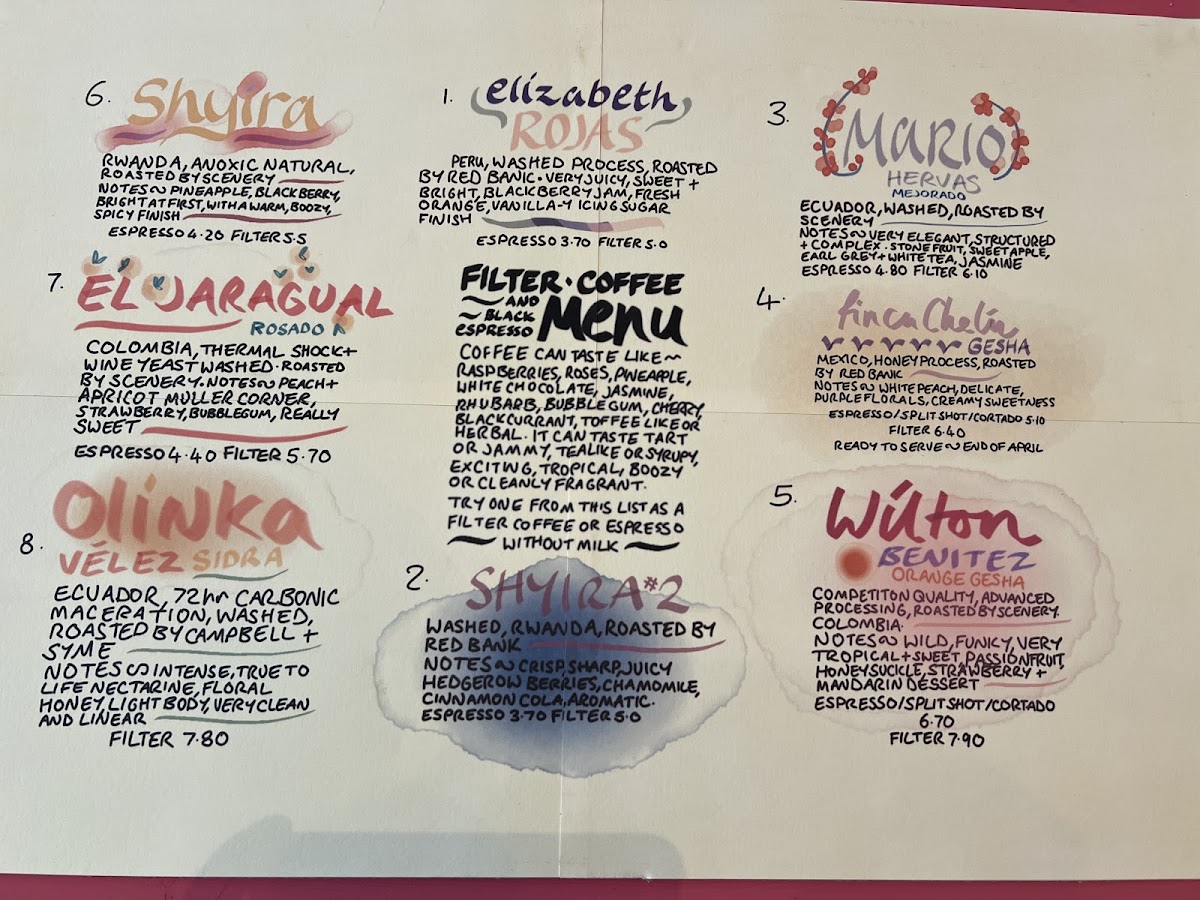 6.
Shyira
RWANDA, ANOXIC NATURAL,
ROASTED BY SCENERY
NOTES ~ PINEAPPLE, BLACKBERRY,
BRIGHT AT FIRST, WITH A WARM, BOOZY,
SPICY FINISH
ESPRESSO 4.20 FILTER 5.5
7.
EL JARAGUAL
ROSADO
COLOMBIA, THERMAL SHOCK +
WINE YEAST WASHED · ROASTED
BY SCENERY · NOTES ~ PEACH +
APRICOT MULLER CORNER,
STRAWBERRY, BUBBLEGUM, REALLY
SWEET
ESPRESSO 4.40 FILTER 5.70
8.
Olinka
VÉLEZ SIDRA
ECUADOR, 72hr CARBONIC
MACERATION, WASHED,
ROASTED BY CAMPBELL +
SYME
NOTES ~ INTENSE, TRUE TO
LIFE NECTARINE, FLORAL
HONEY, LIGHT BODY, VERY CLEAN
AND LINEAR
FILTER 7.80
1.
elizabeth
ROJAS
PERU, WASHED PROCESS, ROASTED
BY RED BANK · VERY JUICY, SWEET +
BRIGHT, BLACKBERRY JAM, FRESH
ORANGE, VANILLA-Y ICING SUGAR
FINISH
ESPRESSO 3.70 FILTER 5.0
FILTER · COFFEE
AND
BLACK
ESPRESSO
Menu
COFFEE CAN TASTE LIKE ~
RASPBERRIES, ROSES, PINEAPPLE,
WHITE CHOCOLATE, JASMINE,
RHUBARB, BUBBLEGUM, CHERRY,
BLACKCURRANT, TOFFEE LIKE OR
HERBAL. IT CAN TASTE TART
OR JAMMY, TEALIKE OR SYRUPY,
EXCITING, TROPICAL, BOOZY
OR CLEANLY FRAGRANT.
TRY ONE FROM THIS LIST AS A
FILTER COFFEE OR ESPRESSO
WITHOUT MILK
2.
SHYIRA #2
WASHED, RWANDA, ROASTED BY
RED BANK
NOTES ~ CRISP, SHARP, JUICY
HEDGEROW BERRIES, CHAMOMILE,
CINNAMON COLA, AROMATIC.
ESPRESSO 3.70 FILTER 5.0
3.
MARIO
HERVAS
MEJORADO
ECUADOR, WASHED, ROASTED BY
SCENERY
NOTES ~ VERY ELEGANT, STRUCTURED
+ COMPLEX · STONE FRUIT, SWEET APPLE,
EARL GREY + WHITE TEA, JASMINE
ESPRESSO 4.80 FILTER 6.10
4.
finca Chelín
GESHA
MEXICO, HONEY PROCESS, ROASTED
BY RED BANK
NOTES ~ WHITE PEACH, DELICATE,
PURPLE FLORALS, CREAMY SWEETNESS
ESPRESSO/SPLIT SHOT/CORTADO 5.10
FILTER 6.40
READY TO SERVE ~ END OF APRIL
5.
Wilton
BENITEZ
ORANGE GESHA
COMPETITON QUALITY, ADVANCED
PROCESSING, ROASTED BY SCENERY.
COLOMBIA.
NOTES ~ WILD, FUNKY, VERY
TROPICAL + SWEET, PASSIONFRUIT,
HONEYSUCKLE, STRAWBERRY +
MANDARIN DESSERT
ESPRESSO/SPLIT SHOT/CORTADO
6.70
FILTER 7.90